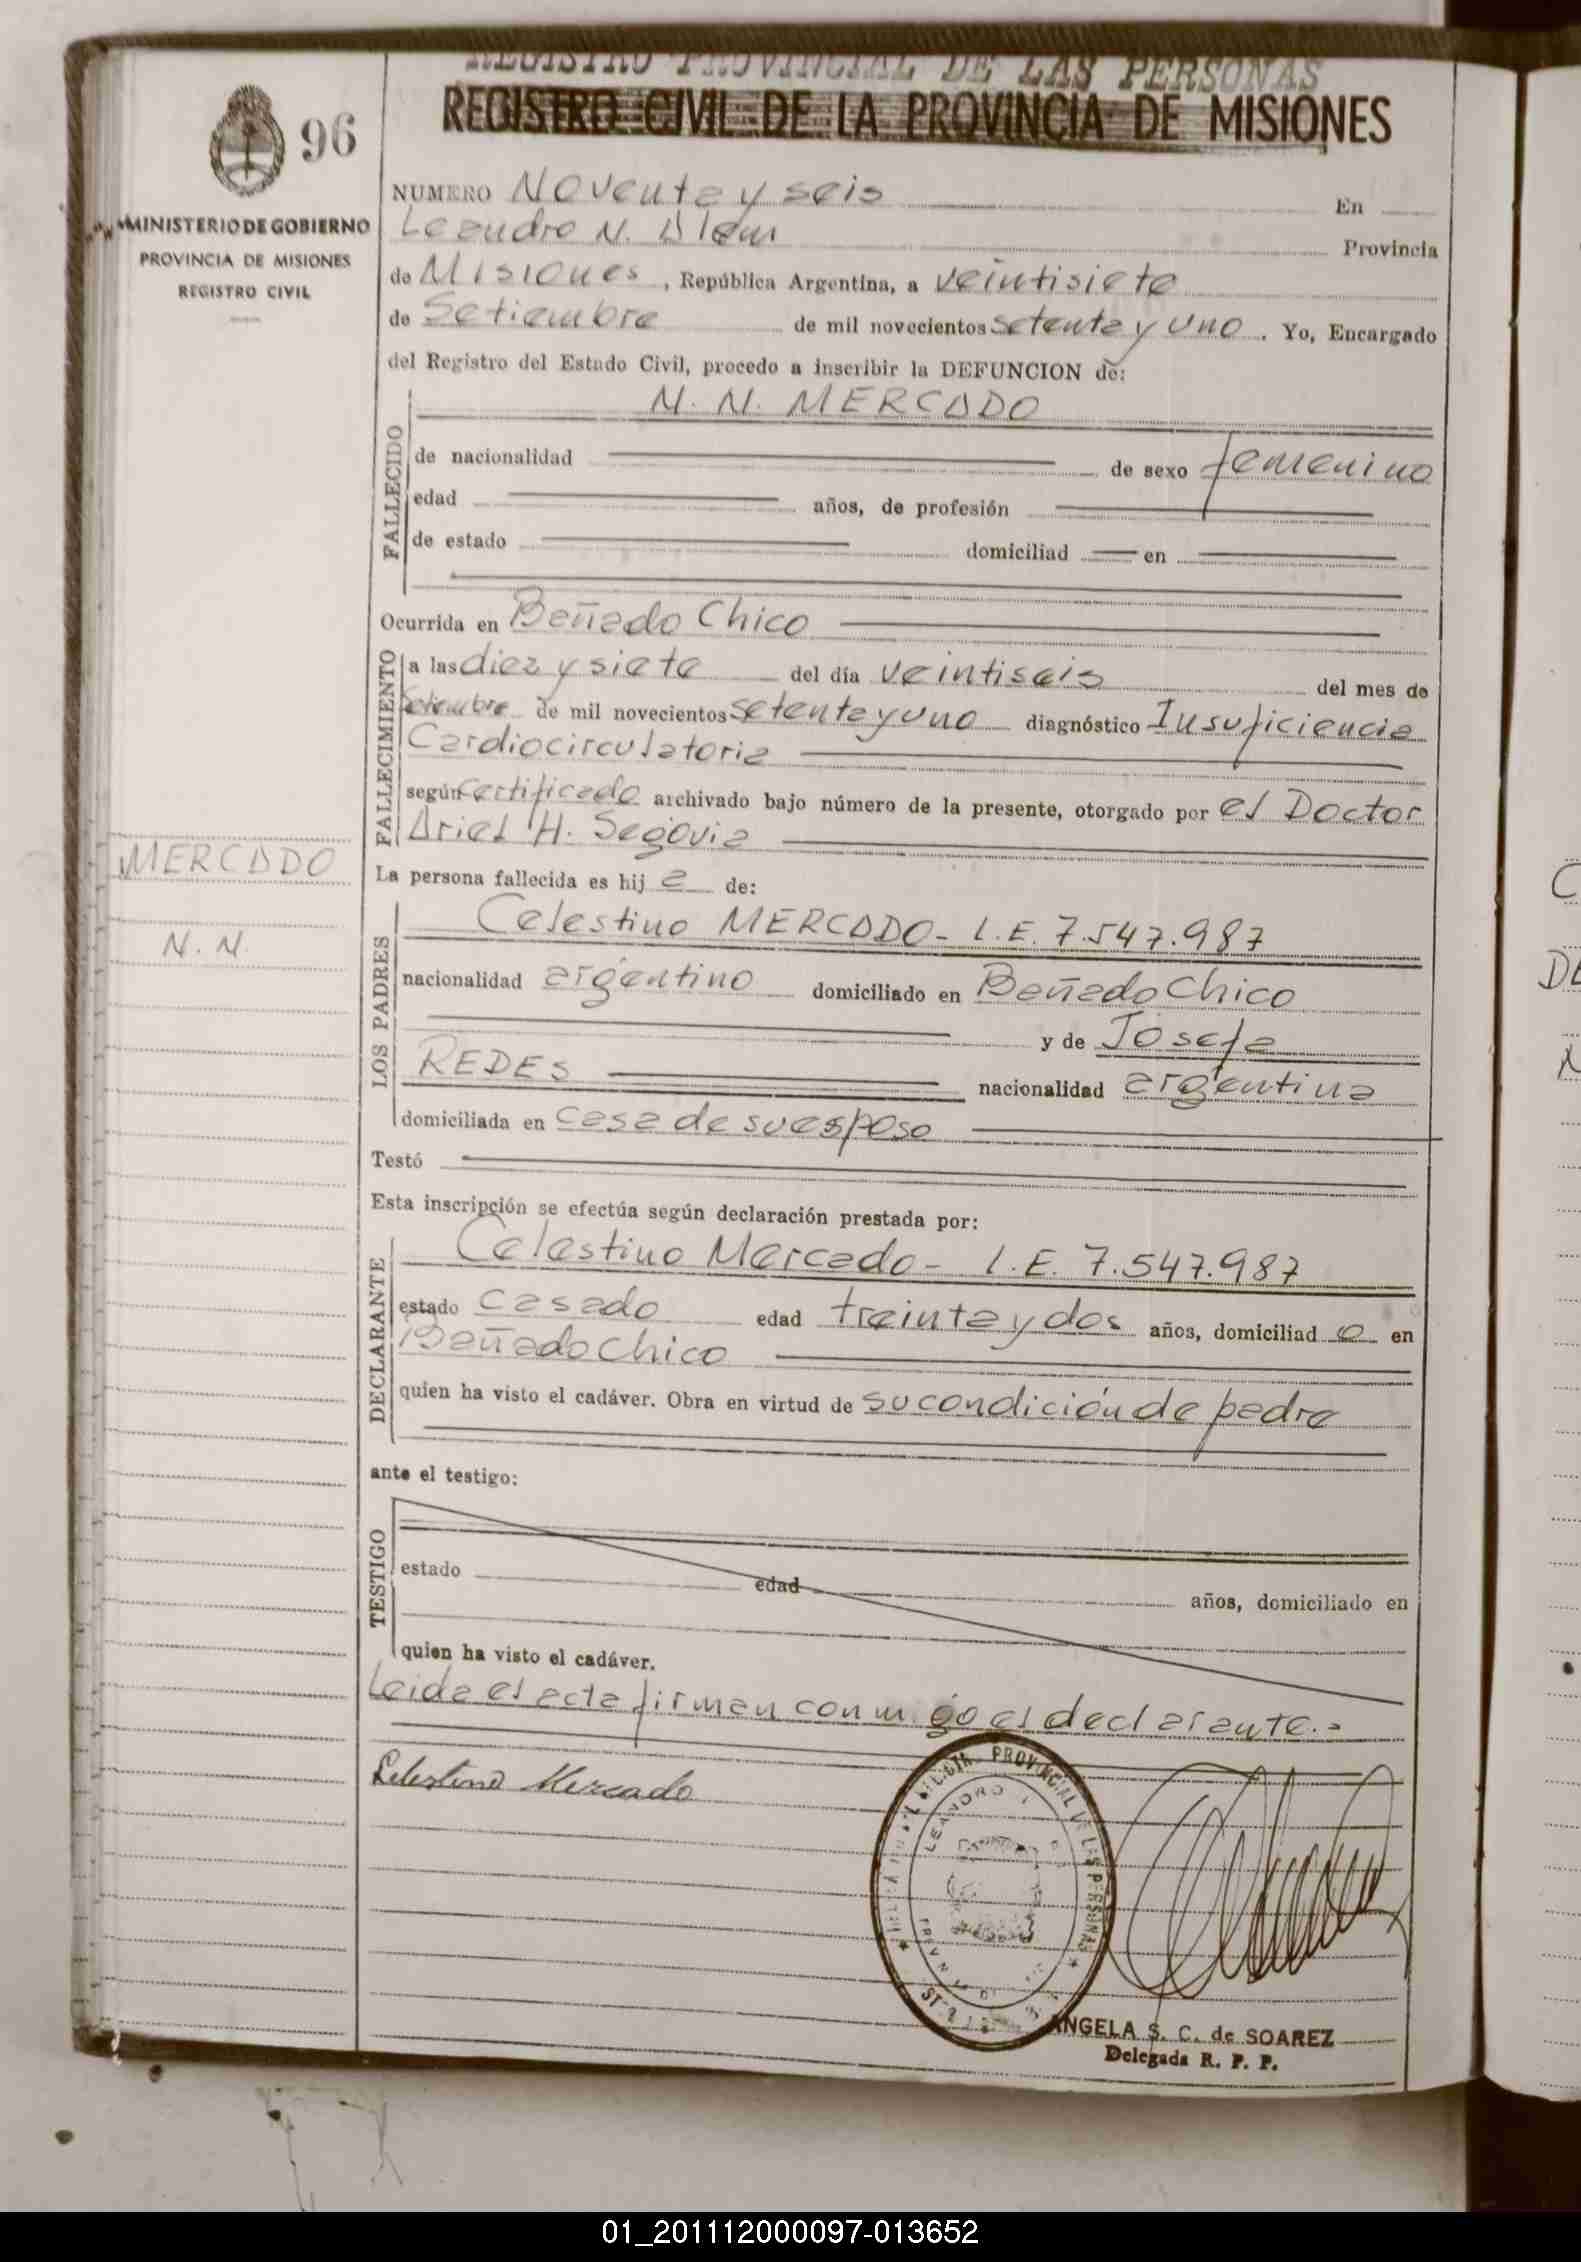 REGISTRO PROVINCIAL DE LAS PERSONAS
REGISTRO CIVIL DE LA PROVINCIA DE MISIONES
96
MINISTERIO DE GOBIERNO
PROVINCIA DE MISIONES
REGISTRO CIVIL
NUMERO Noventa y seis En
Leandro N. Alem Provincia
de Misiones, República Argentina, a veintisiete
de Setiembre de mil novecientos setenta y uno. Yo, Encargado
del Registro del Estado Civil, procedo a inscribir la DEFUNCION de:
N. N. MERCADO
FALLECIDO
de nacionalidad de sexo femenino
edad años, de profesión
de estado domiciliad en
Ocurrida en Bañado Chico
FALLECIMIENTO
a las diez y siete del día veintiseis del mes de
Setiembre de mil novecientos setenta y uno diagnóstico Insuficiencia
Cardiocirculatoria
según certificado archivado bajo número de la presente, otorgado por el Doctor
Ariel H. Segovia
MERCADO
N. N.
La persona fallecida es hij a de:
LOS PADRES
Celestino MERCADO - L.E. 7.547.987
nacionalidad argentino domiciliado en Bañado Chico
y de Josefa
REDES nacionalidad argentina
domiciliada en casa de su esposo
Testó
Esta inscripción se efectúa según declaración prestada por:
DECLARANTE
Celestino Mercado - L.E. 7.547.987
estado casado edad treinta y dos años, domiciliad o en
Bañado Chico
quien ha visto el cadáver. Obra en virtud de su condición de padre
ante el testigo:
TESTIGO
estado edad años, domiciliado en
quien ha visto el cadáver.
Leida el acta firman conmigo el declarante.-
Celestino Mercado
PROVINCIAL DE LAS PERSONAS
LEANDRO
ANGELA S. C. de SOAREZ
Delegada R. P. P.
01_201112000097-013652